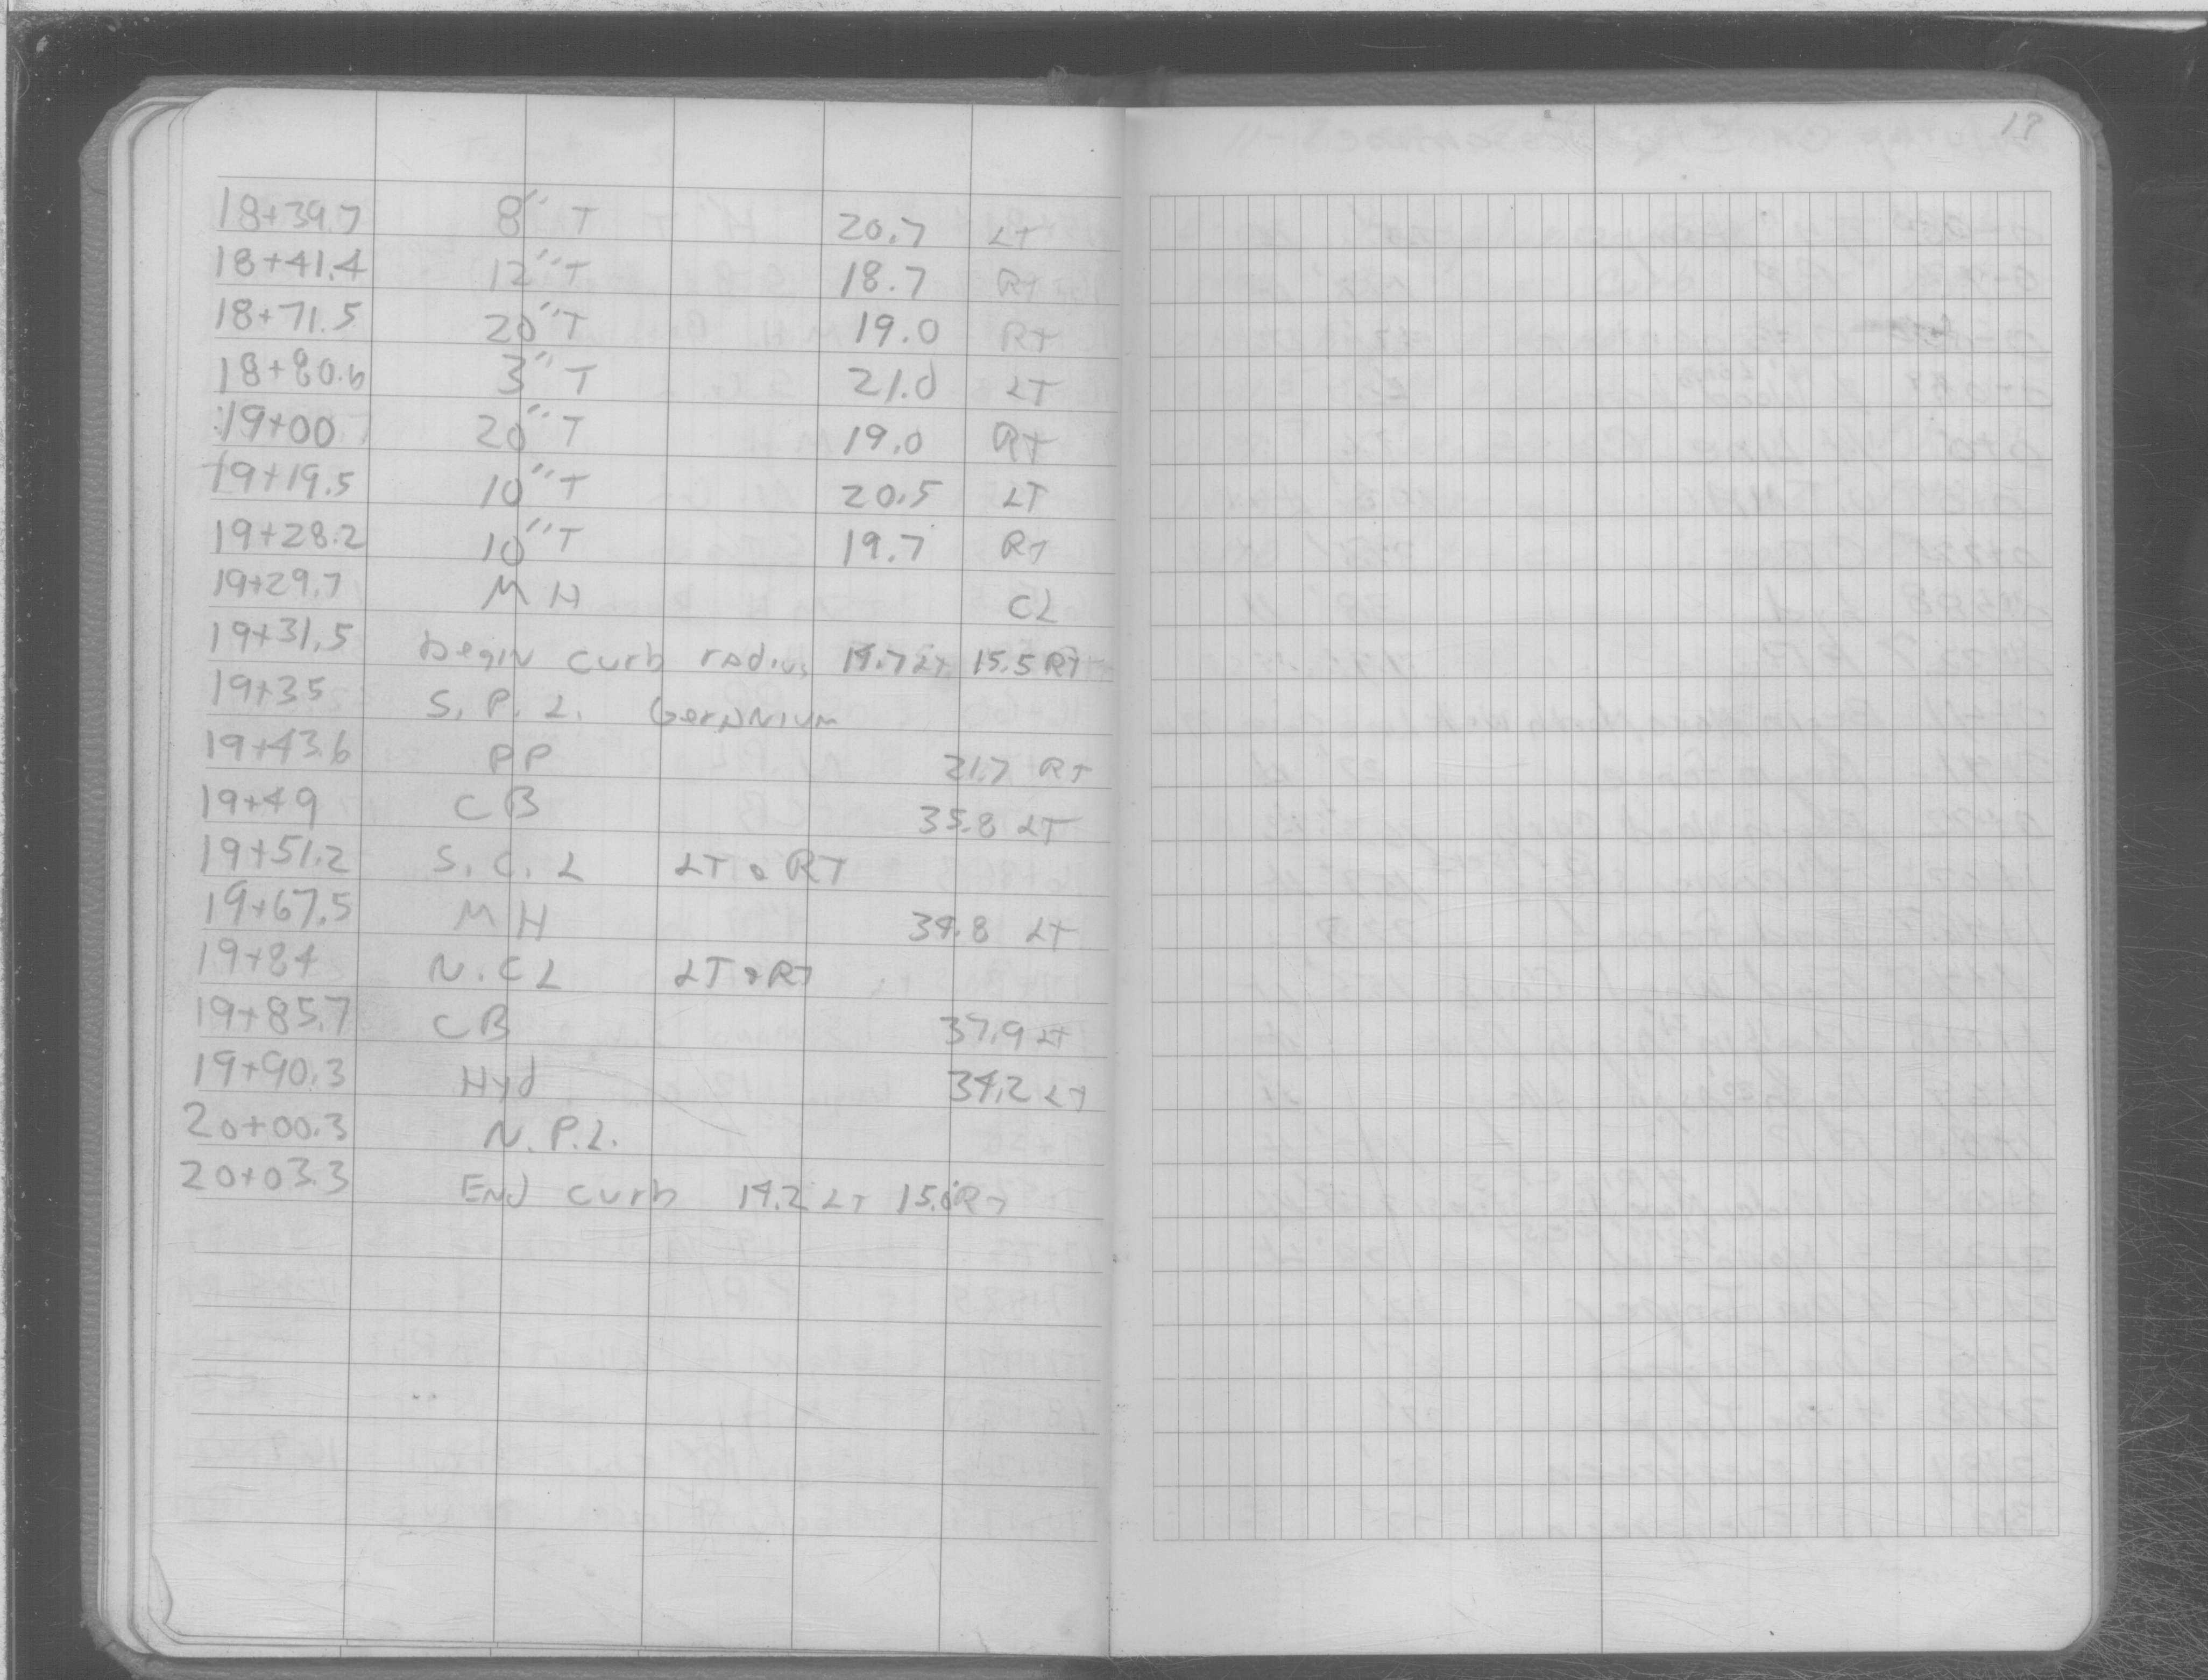 19
18+39.7 8" T 20.7 LT
18+41.4 12" T 18.7 RT
18+71.5 20" T 19.0 RT
18+80.6 3" T 21.0 LT
19+00 20" T 19.0 RT
19+19.5 10" T 20.5 LT
19+28.2 10" T 19.7 RT
19+29.7 MH CL
19+31.5 begin curb radius 14.7 LT 15.5 RT
19+35 S. P. L. Geranium
19+43.6 PP 21.7 RT
19+49 CB 35.8 LT
19+51.2 S. C. L LT & RT
19+67.5 MH 34.8 LT
19+84 N. C L LT & RT
19+85.7 CB 37.9 LT
19+90.3 Hyd 34.2 LT
20+00.3 N. P. L.
20+03.3 End curb 14.2 LT 15.6 RT